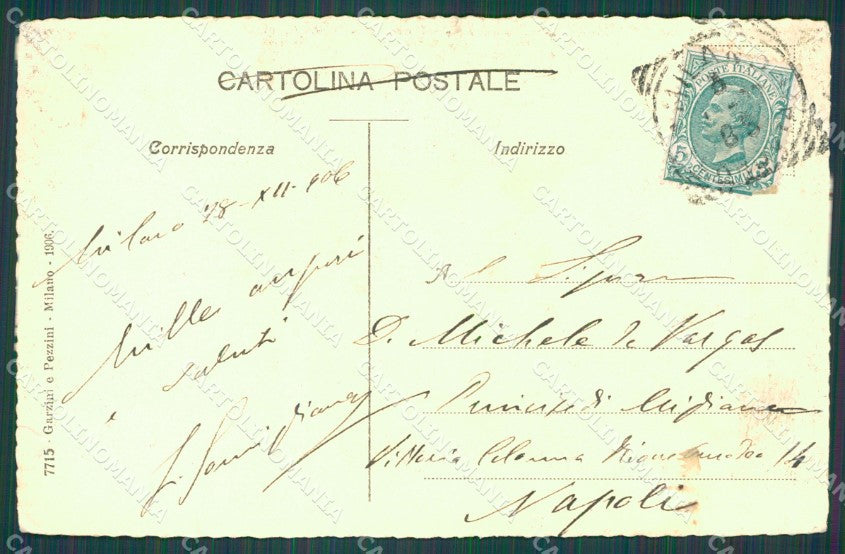 CARTOLINA POSTALE
Corrispondenza
Indirizzo
POSTE ITALIANE
5 CENTESIMI 5
MILANO
Milano 28-XII-906
Mille auguri
e saluti
Al Signor
D. Michele de Vargas
Principe di Migliano
Vittoria Colonna 14
Napoli
7715 - Garzini e Pezzini - Milano - 1906.
CARTOLINOMANIA